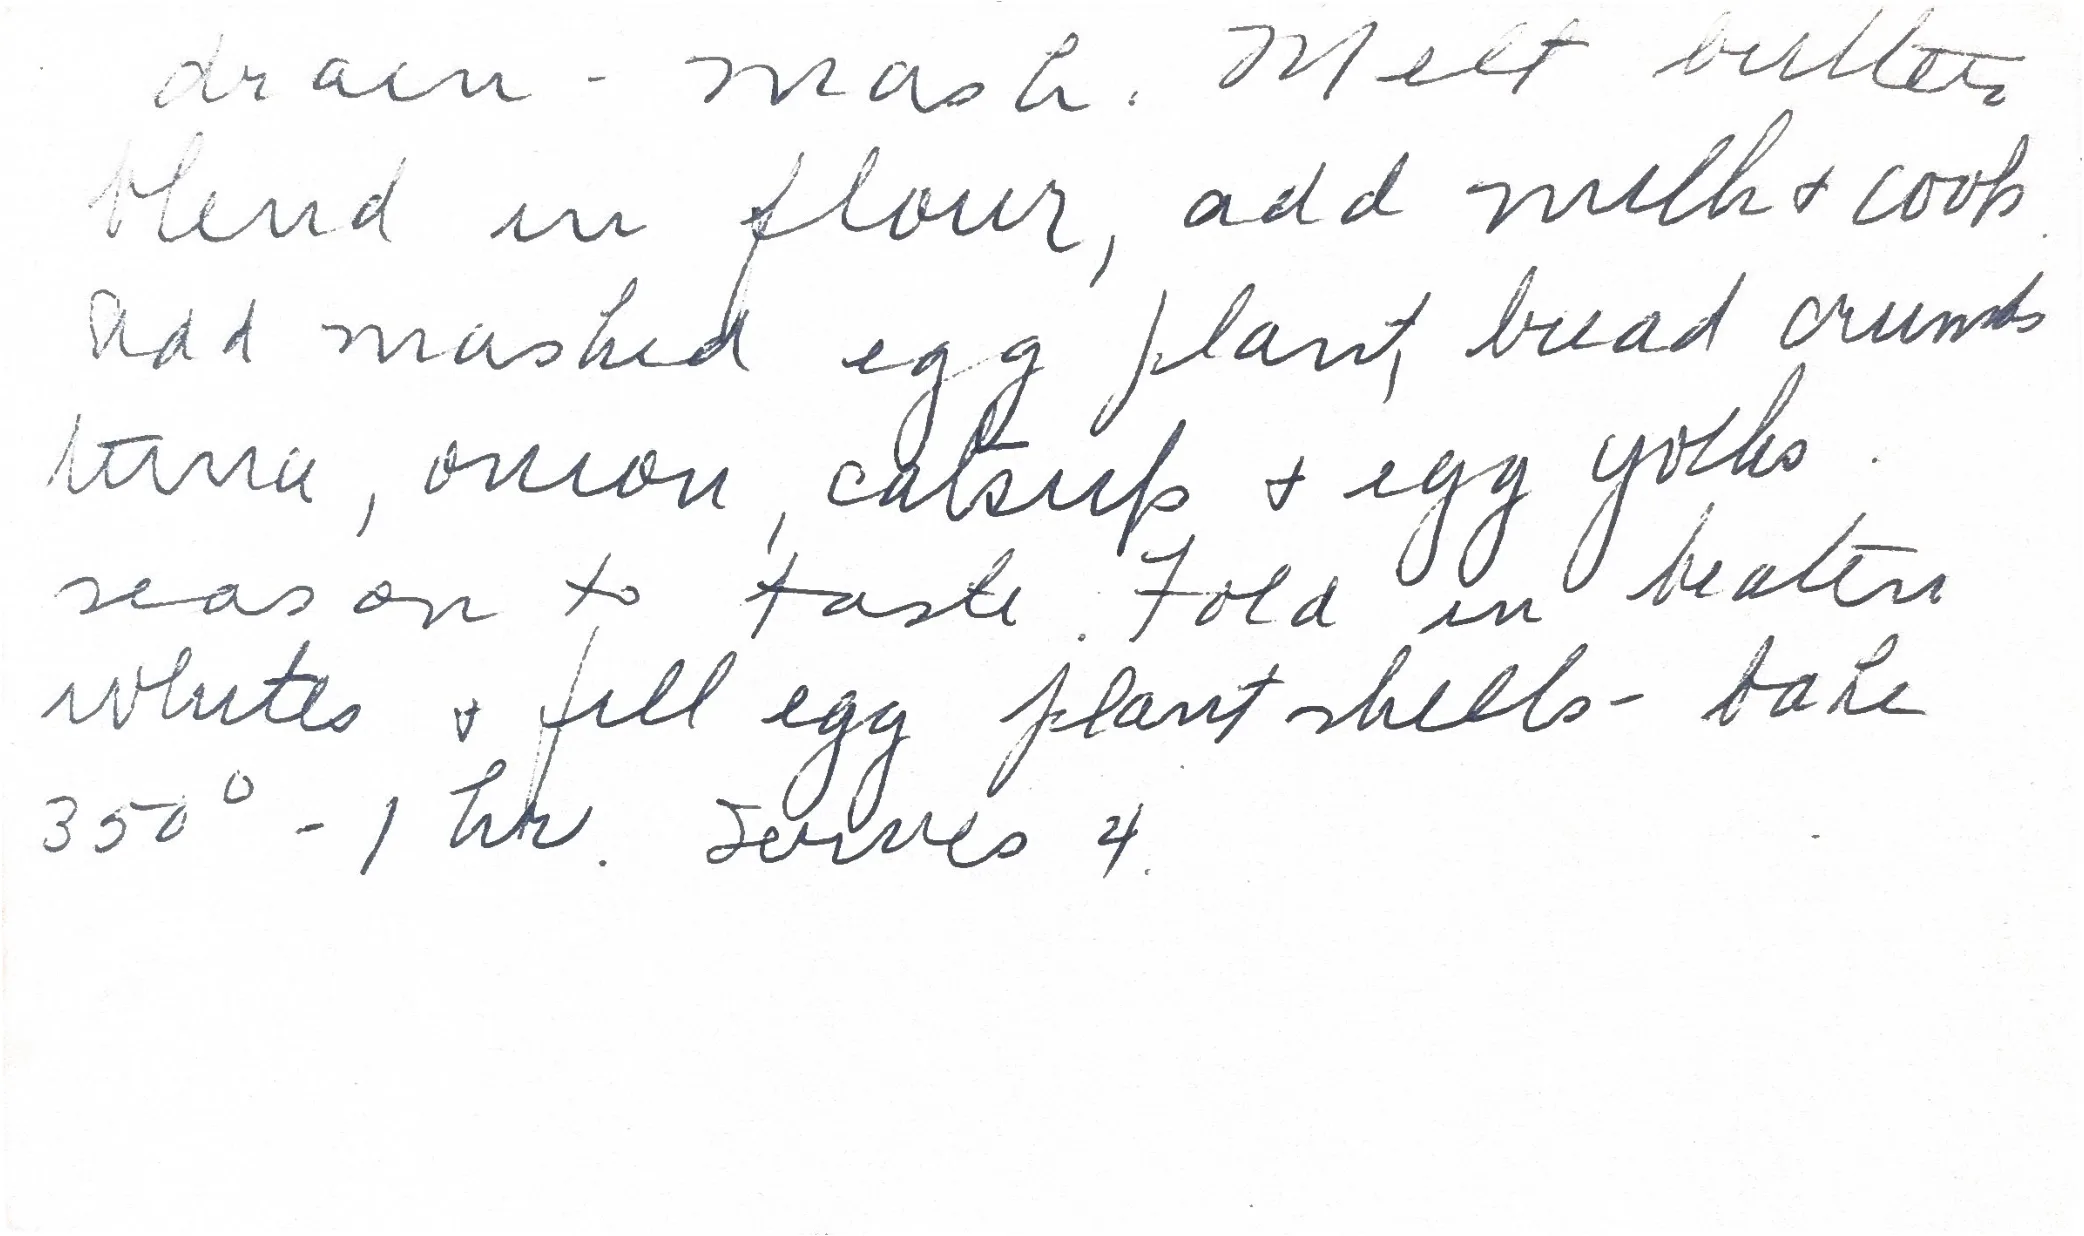 drain - mash. Melt butter,
blend in flour, add milk & cook.
Add mashed egg plant, bread crumbs
tuna, onion, catsup & egg yolks.
season to taste. Fold in beaten
whites & fill egg plant shells - bake
350° - 1 hr. Serves 4.